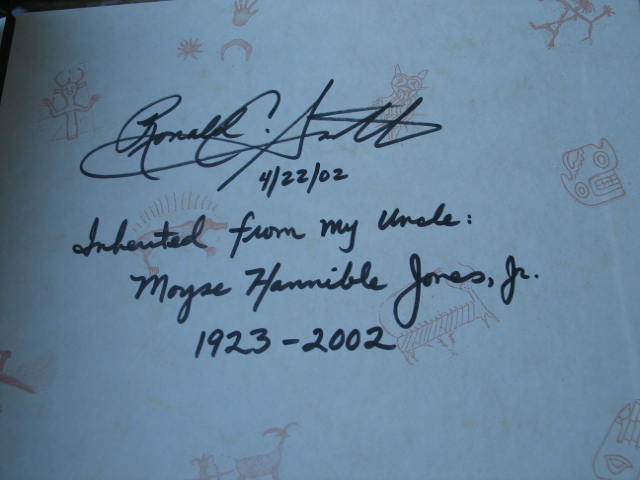 Ronald C.
4/22/02
Inherited from my Uncle:
Moyse Hannible Jones, Jr.
1923-2002